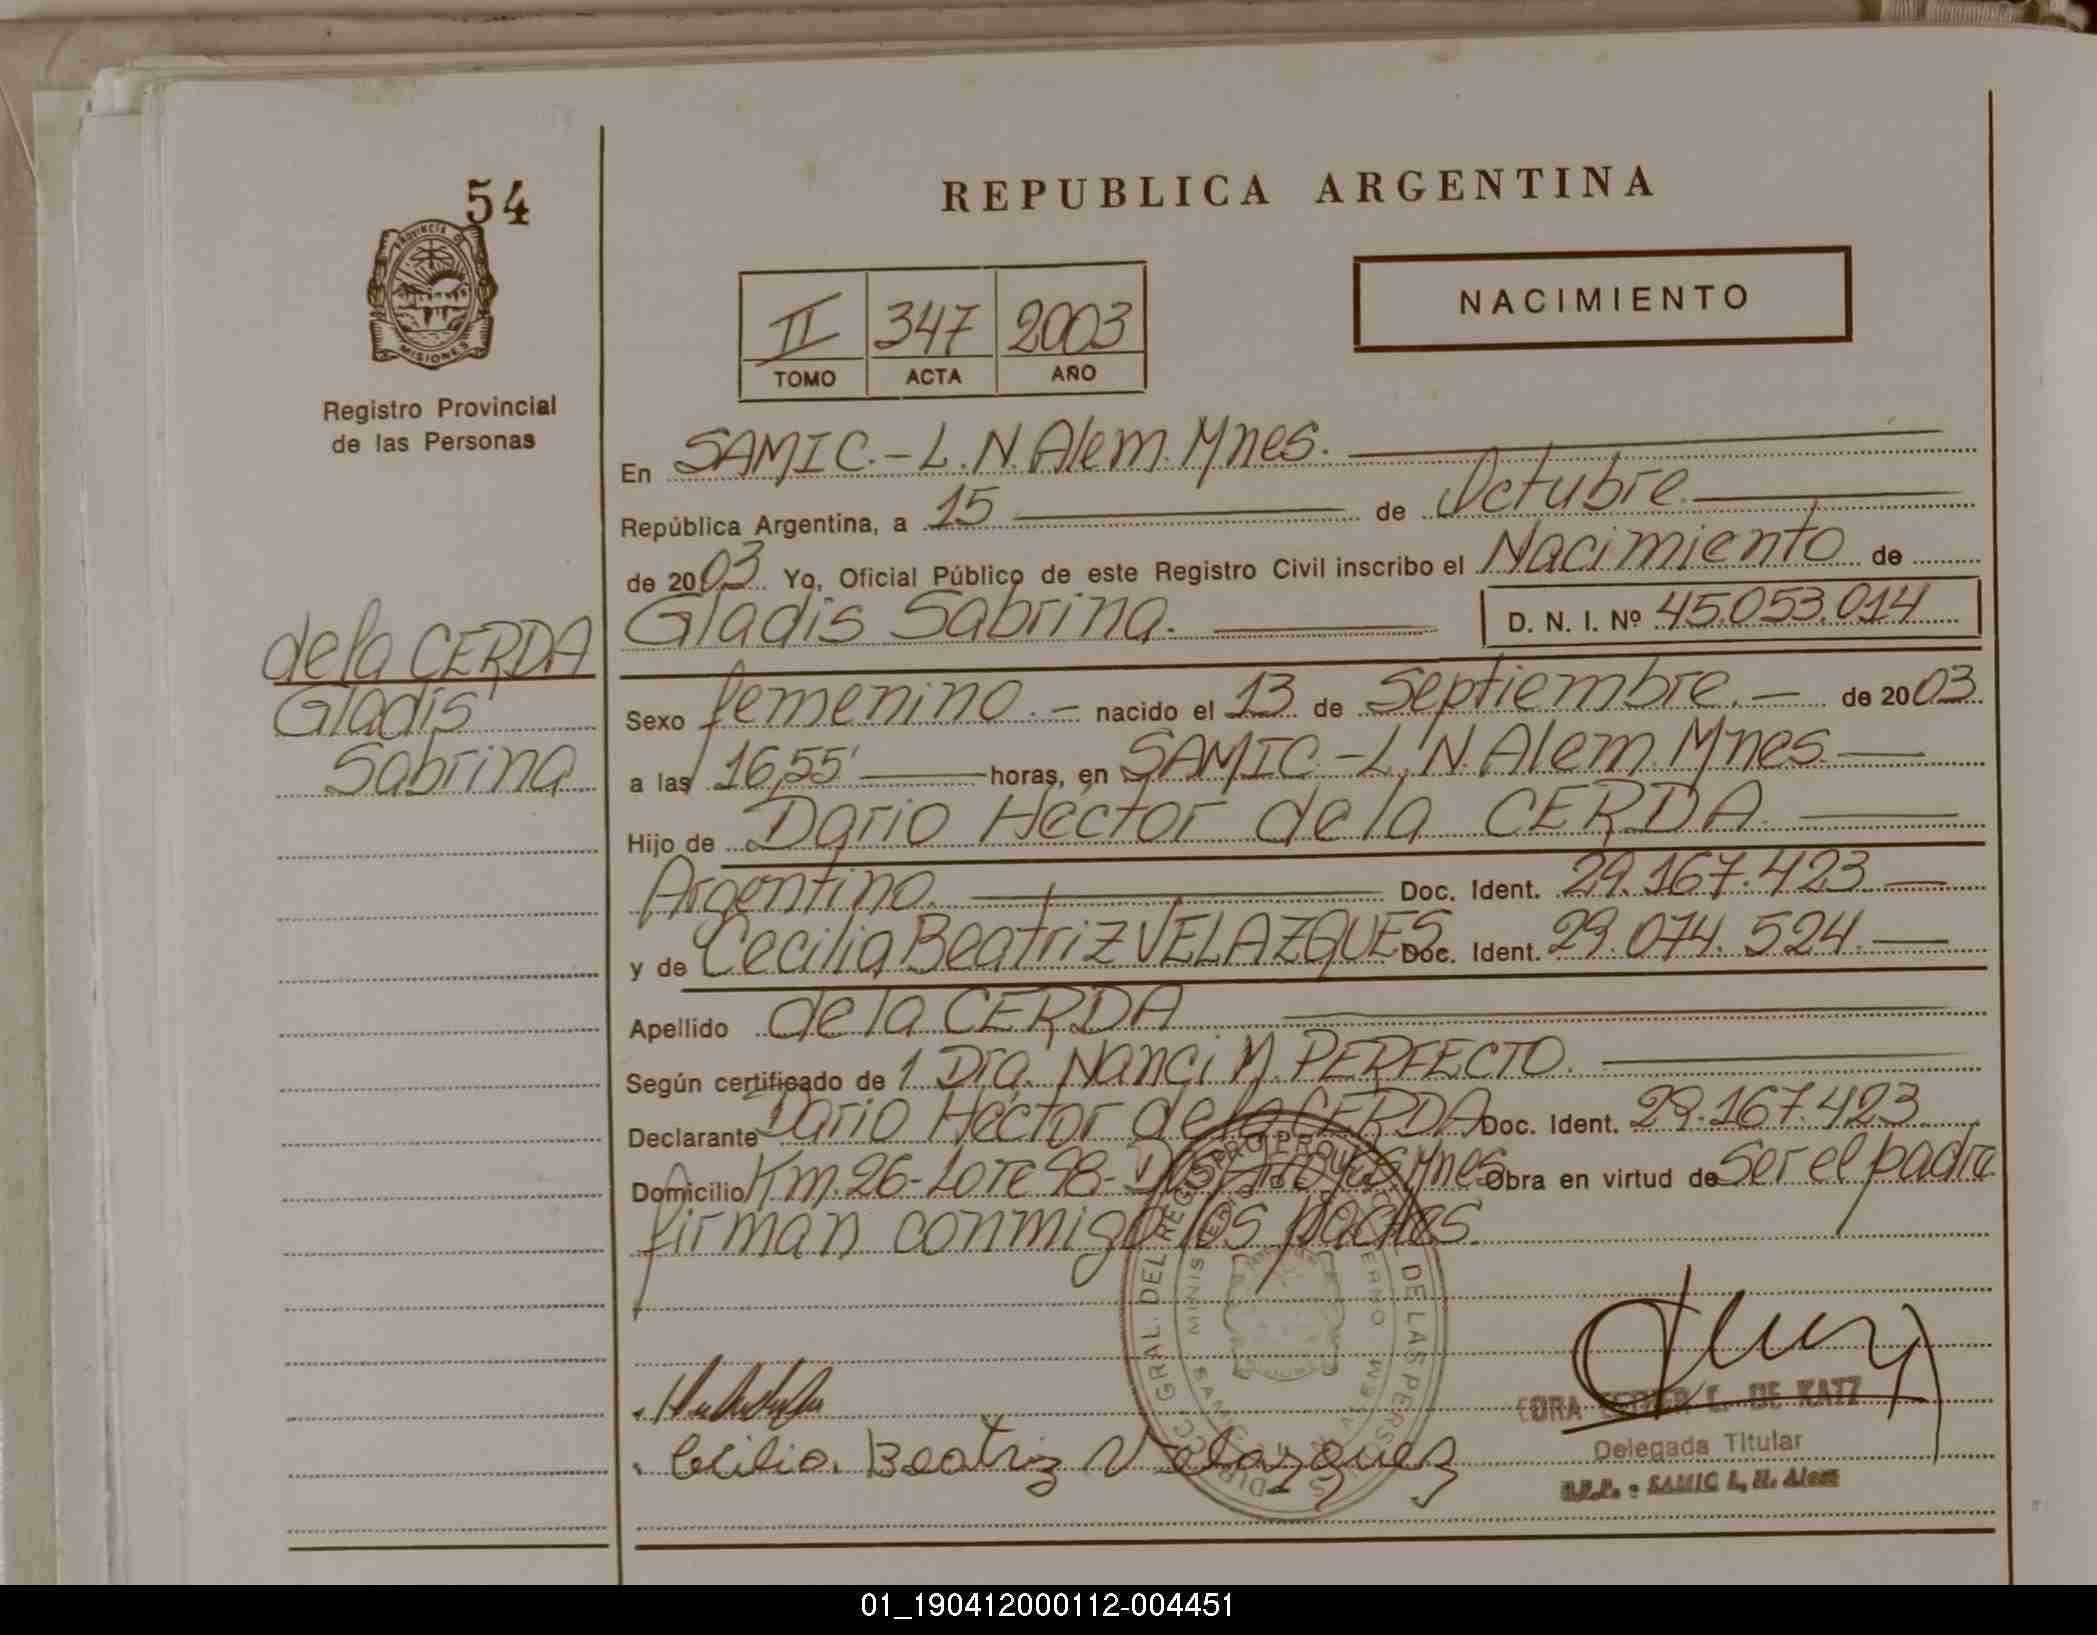 54
PROVINCIA DE
MISIONES
Registro Provincial
de las Personas
REPUBLICA ARGENTINA
II 347 2003
TOMO ACTA AÑO
NACIMIENTO
En SAMIC.-L.N.Alem.Mnes.
República Argentina, a 15 de Octubre
de 2003 Yo, Oficial Público de este Registro Civil inscribo el Nacimiento de
Gladis Sabrina. D. N. I. Nº 45.053.014
de la CERDA
Gladis
Sabrina
Sexo femenino.- nacido el 13 de Septiembre.- de 2003
a las 16,55' horas, en SAMIC.-L.N.Alem.Mnes.
Hijo de Dario Hector de la CERDA.
Argentino. Doc. Ident. 29.167.423
y de Cecilia Beatriz VELAZQUES Doc. Ident. 29.074.524.
Apellido de la CERDA
Según certificado de 1 Dra. Nanci M. PERFECTO.
Declarante Dario Hector de la CERDA Doc. Ident. 29.167.423
Domicilio Km.26-Lote 98- Dos Arroyos Mnes Obra en virtud de Ser el padre
firman conmigo los padres.
GRAL. DEL REG. DE LAS
Cecilia Beatriz Velazquez
L. DE KATZ
Delegada Titular
SAMIC L. N. Alem
01_190412000112-004451